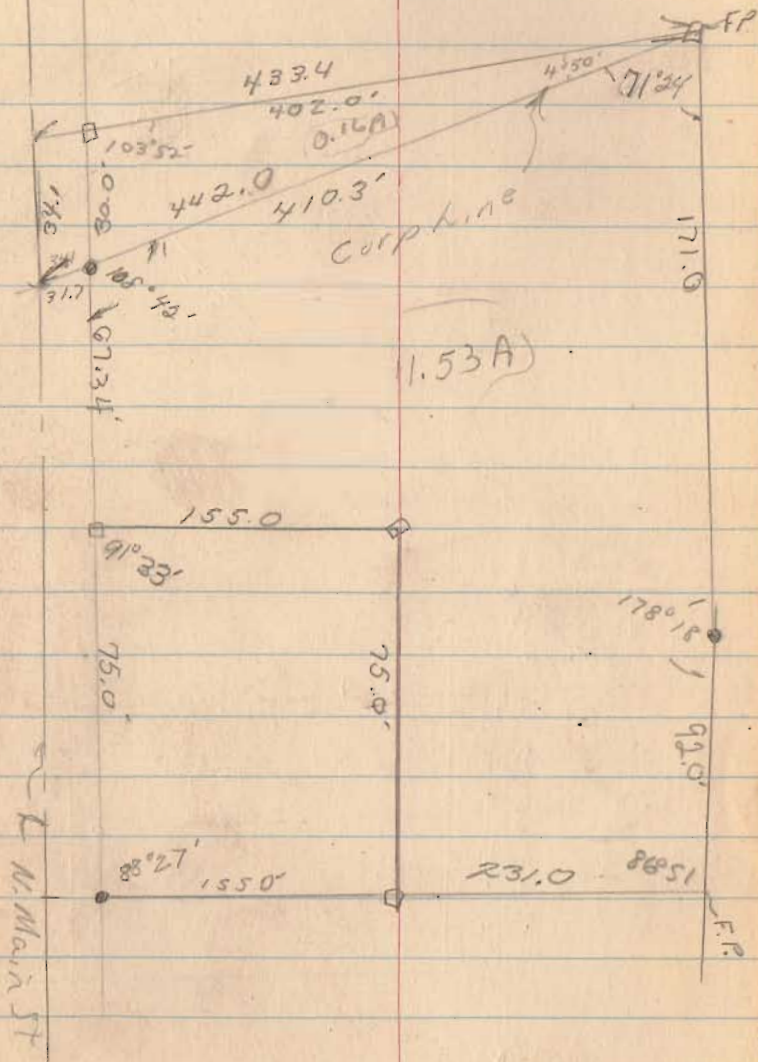 F.P.
433.4
402.0'
4°50'
71°24'
103°52'
0.16A)
34.1
30.0'
442.0
410.3'
Corp Line
31.7
108°42'
171.0
67.34'
1.53A)
155.0
91°33'
178°18'
75.0'
75.0'
92.0'
88°27'
155.0'
231.0
86°51
F.P.
N. Main St